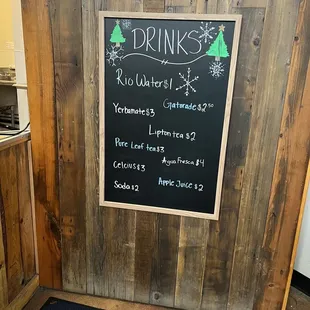 DRINKS
Rio Water $1
Gatorade $2.50
Yerbamate $3
Lipton tea $2
Pure Leaf tea $3
Agua Fresca $4
Celcius $3
Apple Juice $2
Soda $2